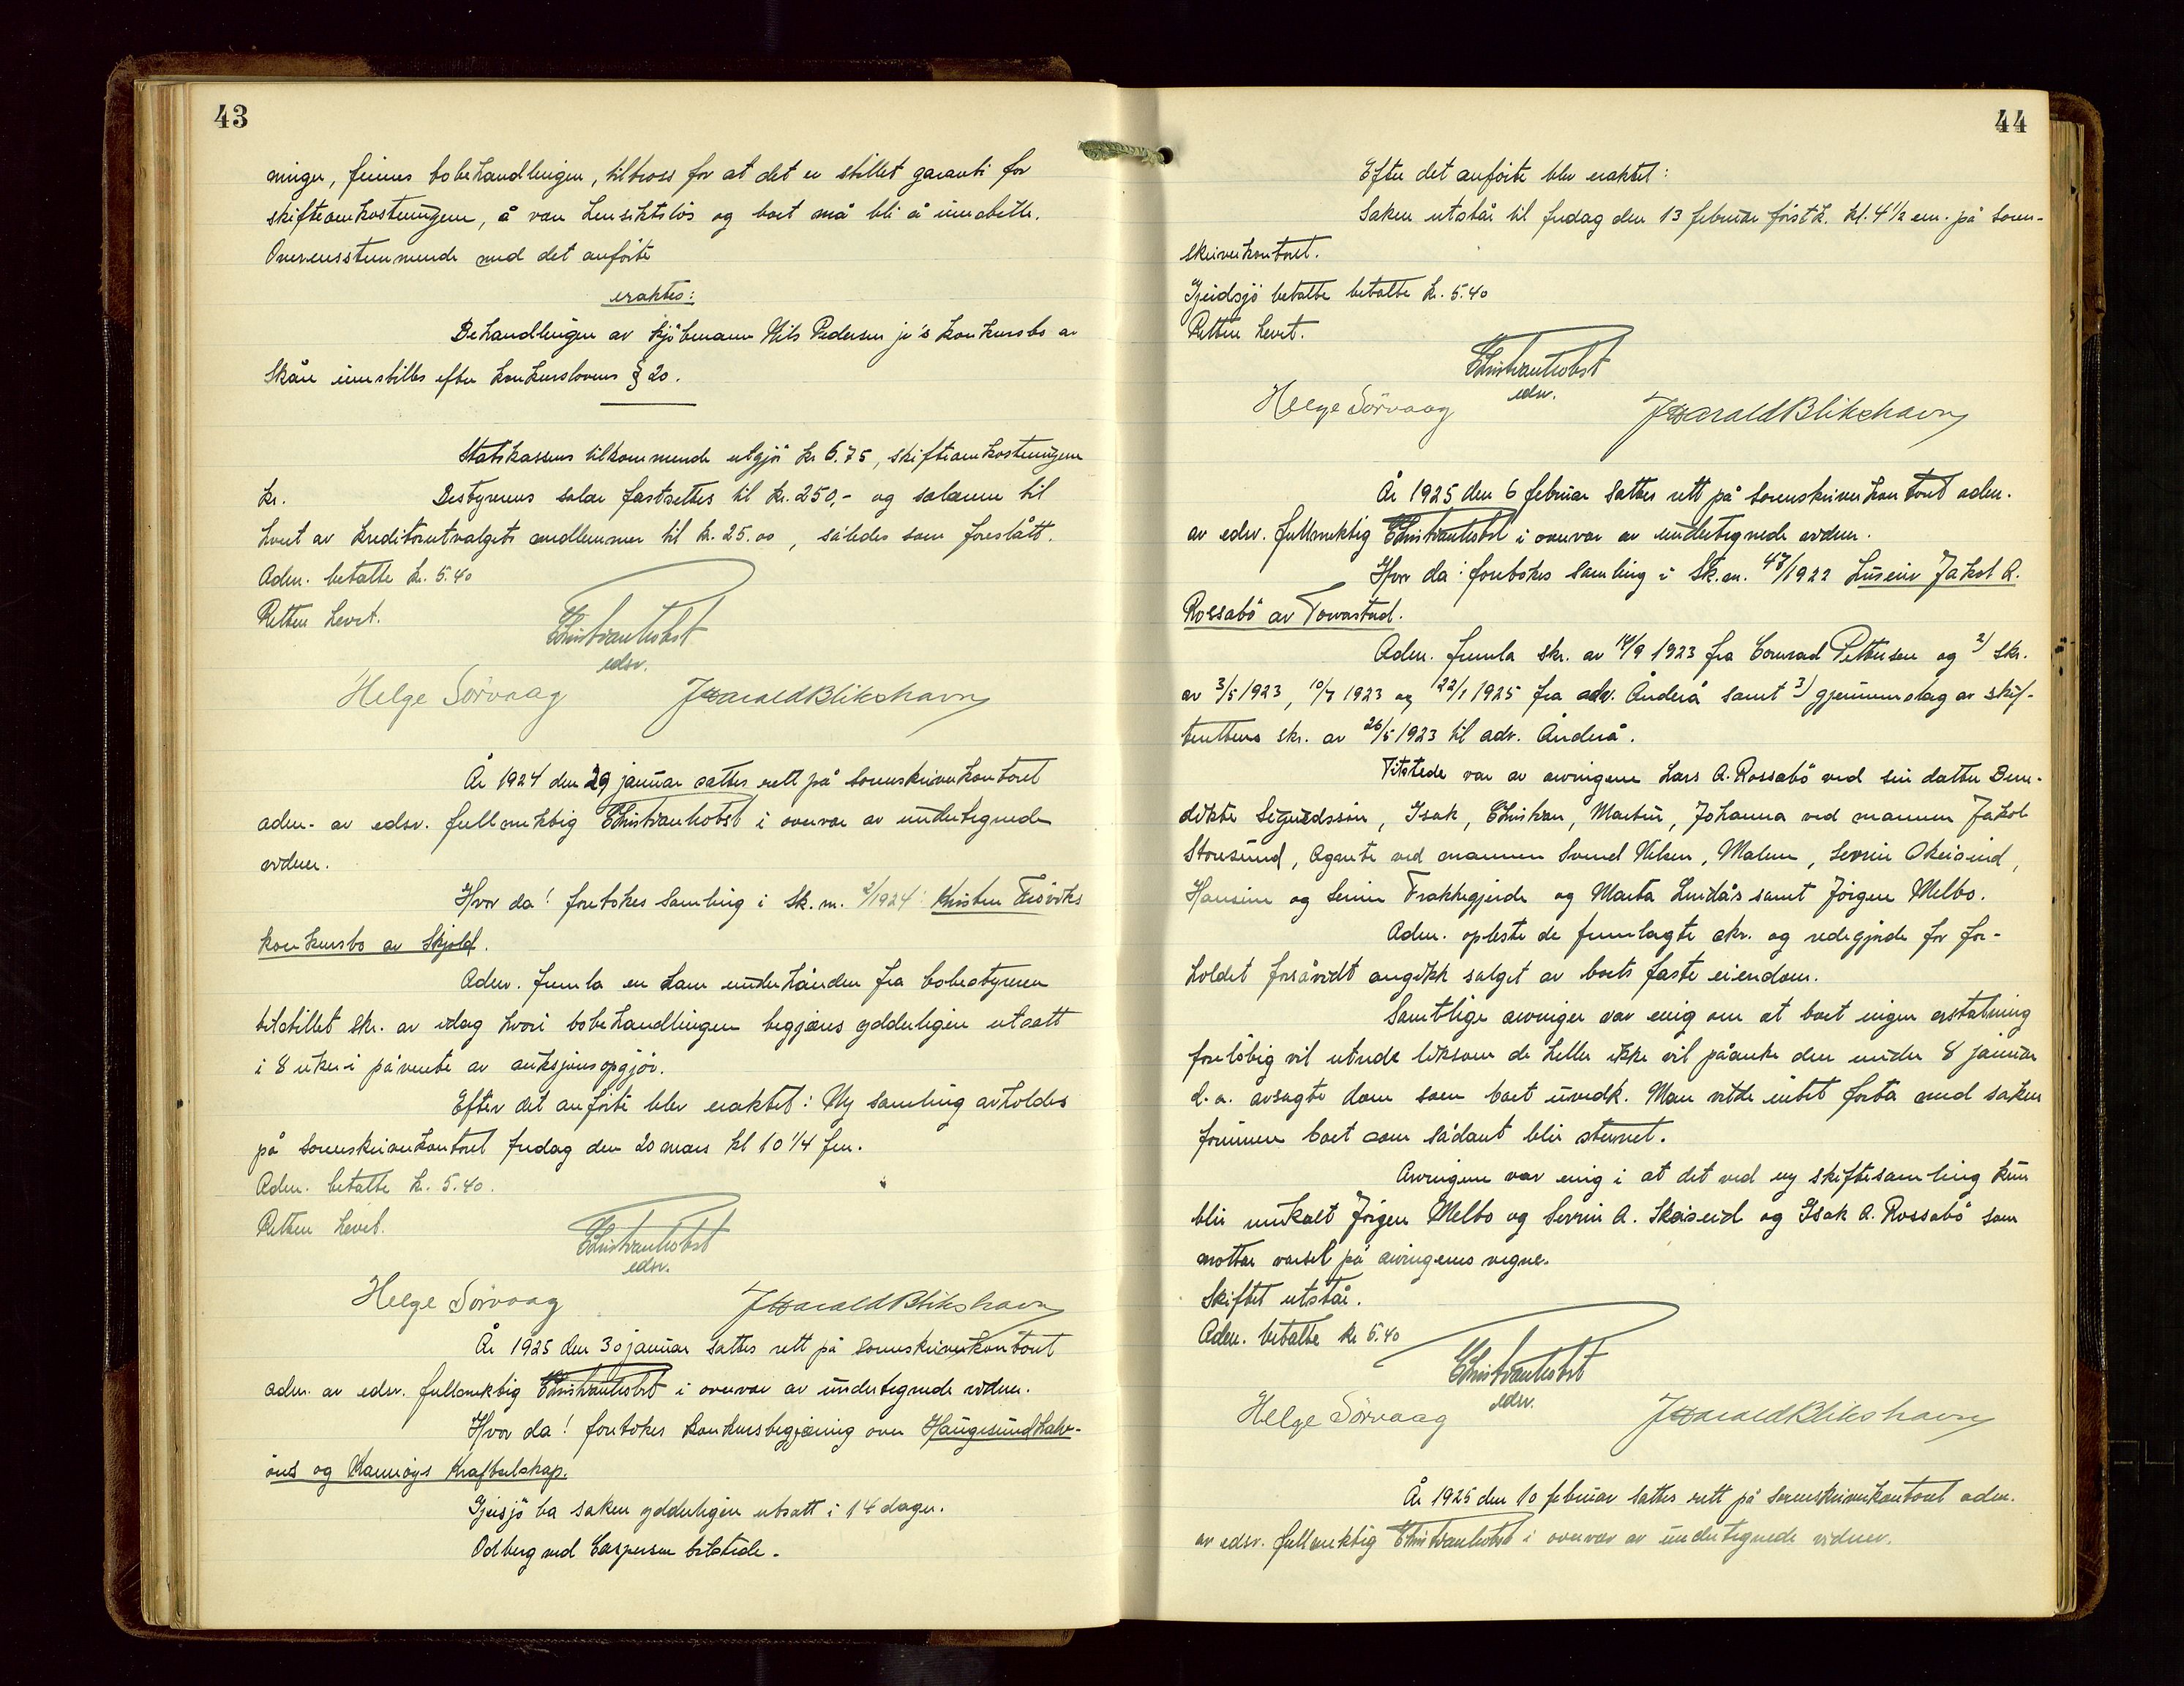 43
ninger, finnes bobehandlingen, tiltross for at det er stillet garanti for
skifteomkostningene, å være hensiktslös og boet må bli å innstille.
Overensstemmende med det anförte
eraktes:
Behandlingen av kjöbmann Nils Pedersen jr's konkursbo av
Skåre innstilles efter konkurslovens § 20.
Statskassens tilkommende utgjör kr 6.75, skifteomkostningene
kr. Bestyrerens salær fastsettes til kr. 250,- og salærene til
hvert av kreditorutvalgets medlemmer til kr. 25.00, således som foreslått.
Adm. betalte kr. 5.40
Retten hevet.
Christian Lobst
edsv.
Helge Sörvaag Harald Blikshavn
År 1924 den 29 januar sattes rett på sorenskriverkontoret
adm. av edsv. fullmektig Christian Lobst i overvær av undertegnede
vidner.
Hvor da! foretokes samling i Sk. nr. 2/1924: Kristen
konkursbo av Skjold.
Adm. fremla en ham underhånden fra bobestyreren
tilstillet skr. av idag hvori bobehandlingen begjæres ydderligere utsatt
i 8 uker i påvente av auksjonsopgjör.
Efter det anförte blev eraktet: Ny samling avholdes
på sorenskriverkontoret fredag den 20 mars kl 10 1/4 fm.
Adm. betalte kr. 5.40.
Retten hevet.
Christian Lobst
edsv.
Helge Sörvaag Harald Blikshavn
År 1925 den 30 januar sattes rett på sorenskriverkontoret
adm. av edsv. fullmektig Christian Lobst i overvær av undertegnede vidner.
Hvor da! foretokes konkursbegjæring over Haugesundhalv-
öens og Karmöys Kraftselskap.
Gjeisjö ba saken ydderligere utsatt i 14 dager.
Odberg ved Caspersen tilstede.
44
Efter det anförte blev eraktet:
Saken utstår til fredag den 13 februar förstk. kl. 4 1/2 em. på soren-
skriverkontoret.
Gjeidsjö betalte betalte kr. 5.40
Retten hevet.
Christian Lobst
edsv.
Helge Sörvaag Harald Blikshavn
År 1925 den 6 februar sattes rett på sorenskriverkontoret adm.
av edsv. fullmektig Christian Lobst i overvær av undertegnede vidner.
Hvor da: foretokes samling i Sk. nr. 47/1922 Huseier Jakob A.
Rossabö av Torvastad.
Adm. fremla skr. av 14/9 1923 fra Conrad Pettersen og 2) skr.
av 3/5 1923, 10/7 1923 og 22/1 1925 fra adv. Änderå samt 3) gjennemslag av skif-
terettens skr. av 26/5 1923 til adv. Änderå.
Tilstede var av arvingene Lars A. Rossabö ved sin datter Ben-
dikte Sigurdssön, Isak, Christian, Martin, Johanna ved mannen Jakob
Storesund, Agnete ved mannen Svend Nilsen, Malene, Severin Skeiseid,
Hansine og Serine Frakkagjerde og Marta Lindås samt Jörgen Melbo.
Adm. opleste de fremlagte skr. og redegjorde for for-
holdet forsåvidt angikk salget av boets faste eiendom.
Samtlige arvinger var enig om at boet ingen erstatning
forelöbig vil utrede liksom de heller ikke vil påanke den under 8 januar
d. a. avsagte dom som boet inntok. Man vilde intet foreta med saken
forinnen boet som sådant blir stevnet.
Arvingene var enig i at det ved ny skiftesamling kun
blir innkalt Jörgen Melbo og Severin A. Skeiseid og Isak A. Rossabö som
mottar varsel på arvingenes vegne.
Skiftet utstår.
Adm. betalte kr 5.40
Christian Lobst
edsv.
Helge Sörvaag Harald Blikshavn
År 1925 den 10 februar sattes rett på sorenskriverkontoret adm.
av edsv. fullmektig Christian Lobst i overvær av undertegnede vidner.